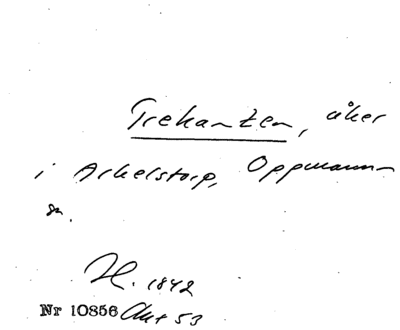 Trekanten, åker
i Arkelstorp, Oppmanna
sn.
H. 1842
Nr 10856 Akt 53